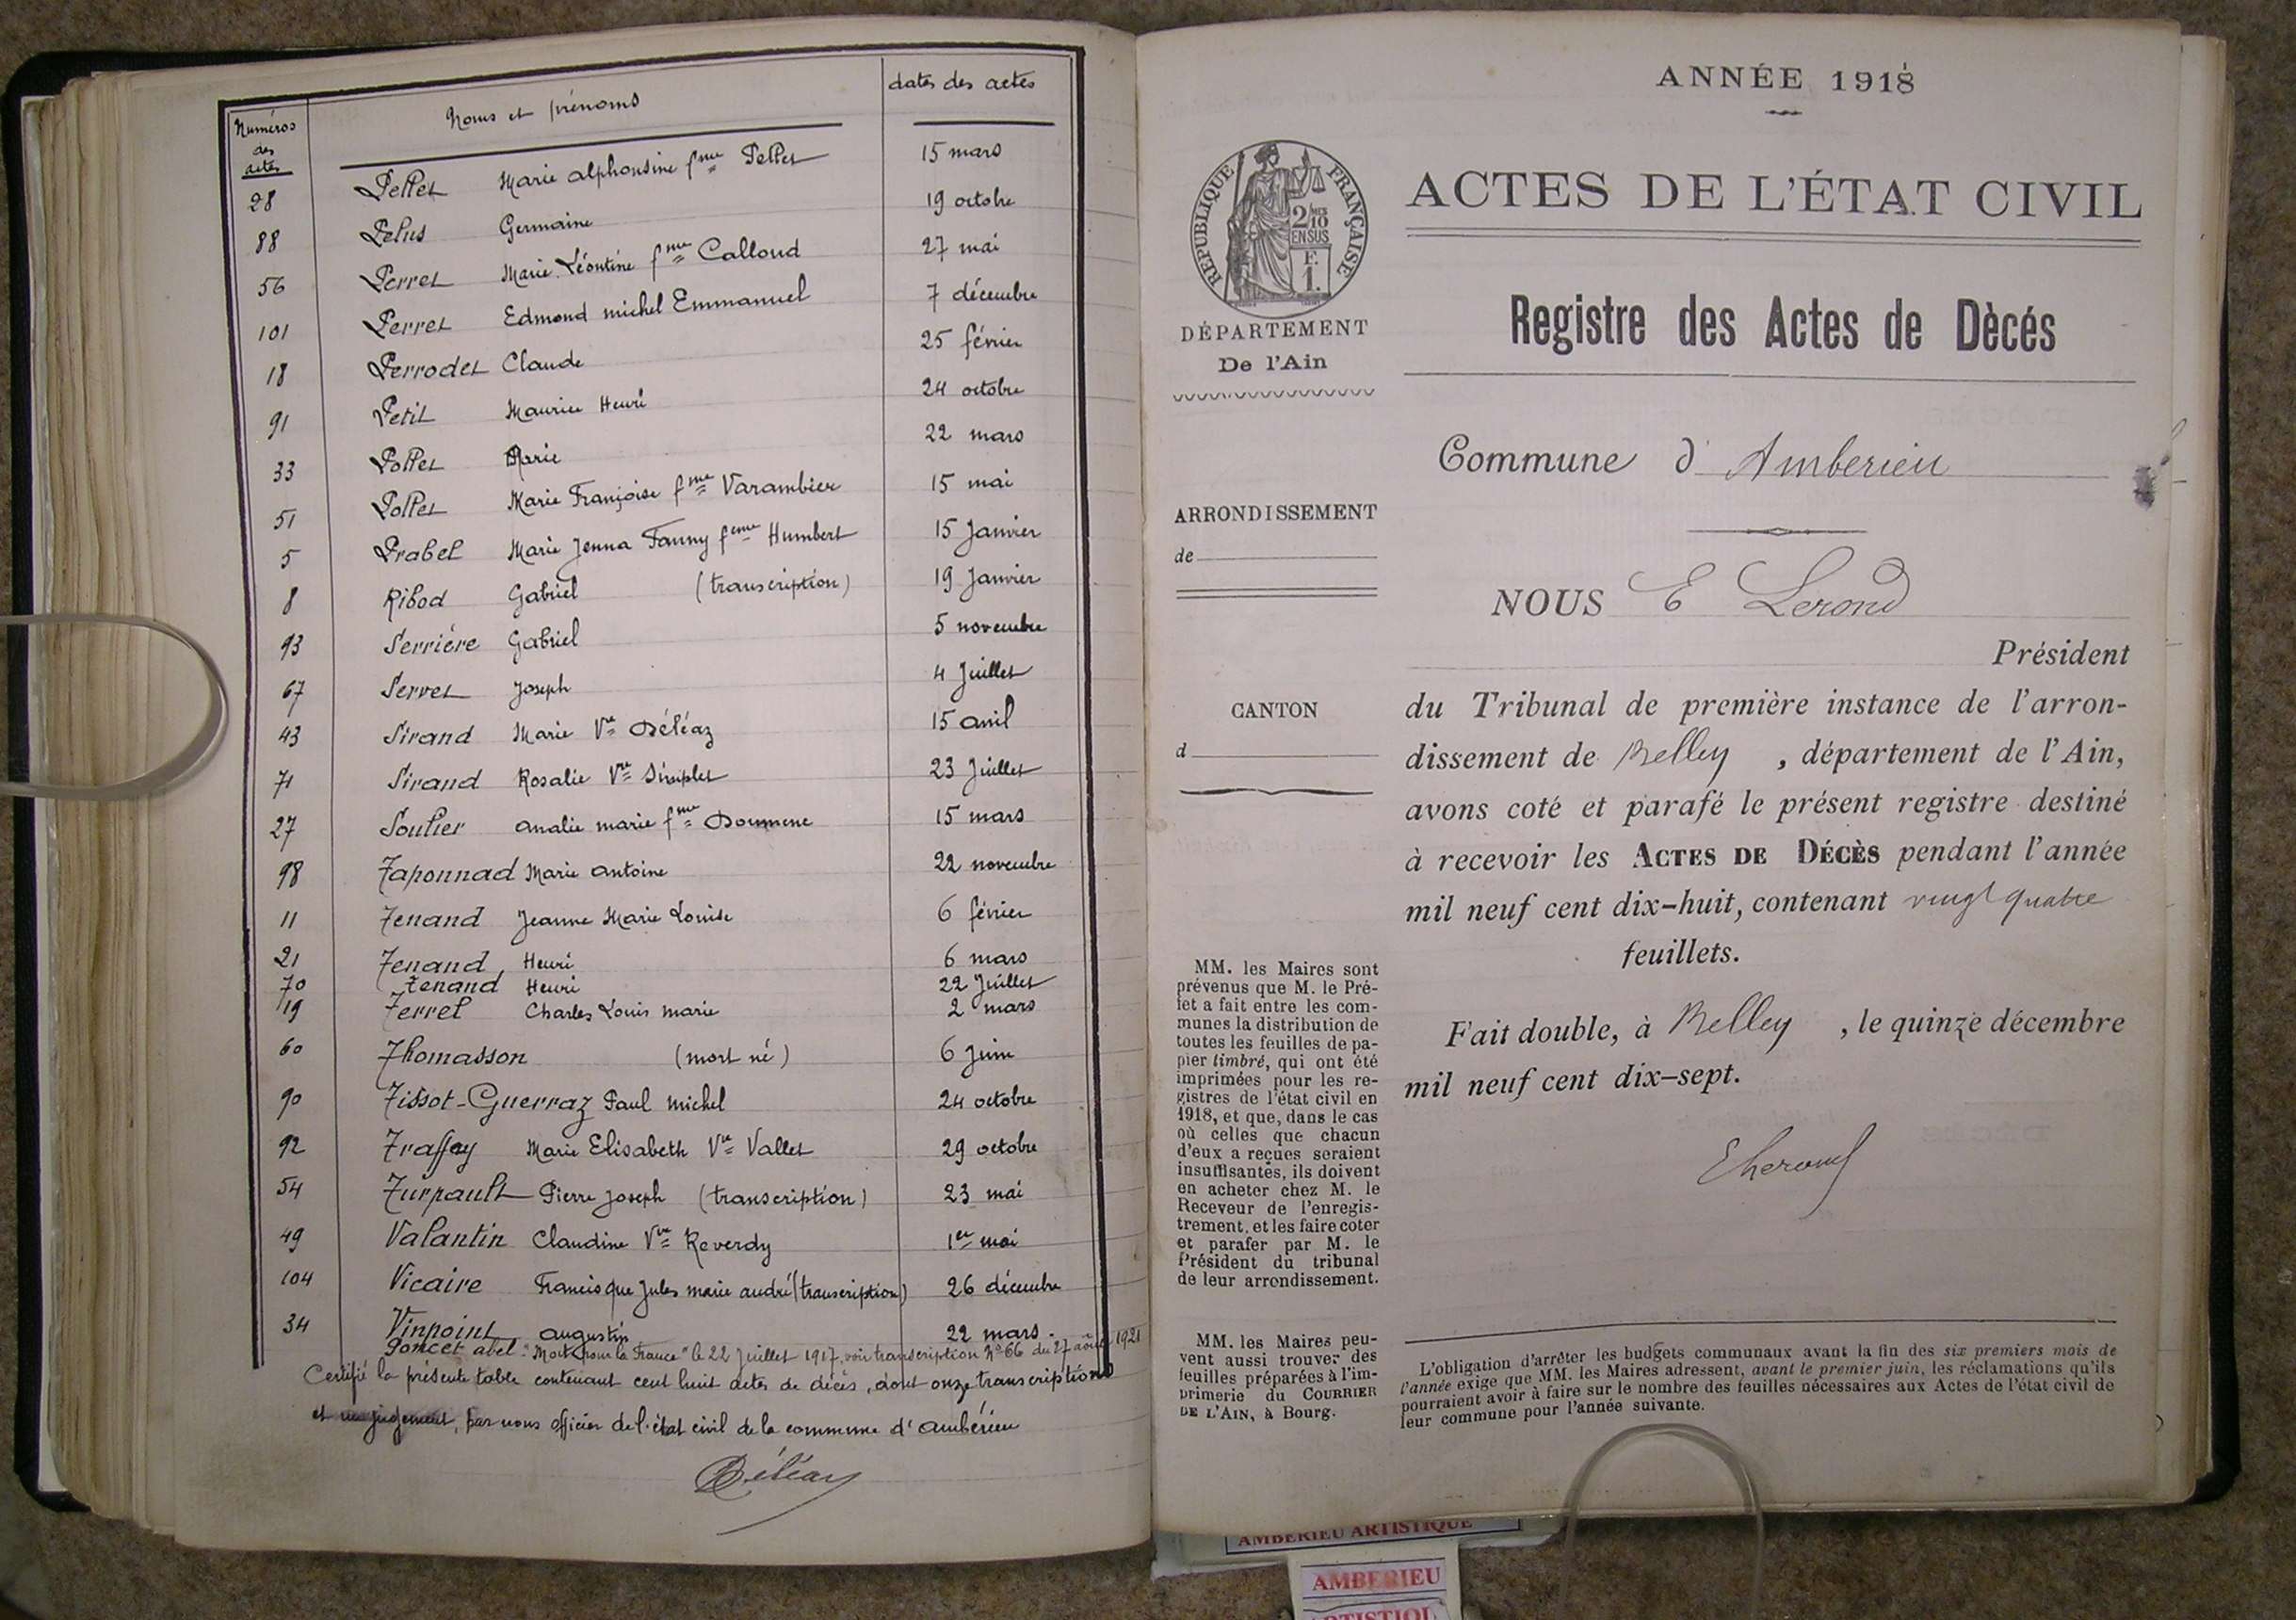 Numéros des actes Noms et prénoms dates des actes
28 Pellet Marie alphonsine fme Pellet 15 mars
88 Pelus Germaine 19 octobre
56 Perret Marie Léontine fme Calloud 27 mai
101 Perret Edmond michel Emmanuel 7 décembre
18 Perrodet Claude 25 février
91 Petit Maurice Henri 24 octobre
33 Pollet Marie 22 mars
51 Pollet Marie Françoise fme Varambier 15 mai
5 Prabel Marie Jenna Fanny feme Humbert 15 Janvier
8 Ribod Gabriel (transcription) 19 Janvier
93 Serrière Gabriel 5 novembre
67 Servet Joseph 4 Juillet
43 Sirand Marie Ve Déléaz 15 avril
71 Sirand Rosalie Vve Simplet 23 Juillet
27 Soulier analie marie fme Doumene 15 mars
98 Taponnad Marie antoine 22 novembre
11 Tenand Jeanne Marie Louise 6 février
21 Tenand Henri 6 mars
70 tenand Henri 22 Juillet
19 Terret Charles Louis marie 2 mars
60 Thomasson (mort né) 6 Juin
90 Tissot-Guerraz Paul michel 24 octobre
92 Traffay Marie Elisabeth Ve Vallet 29 octobre
54 Turpault Pierre Joseph (transcription) 23 mai
49 Valantin Claudine Vve Reverdy 1er mai
104 Vicaire Francisque Jules marie andré (transcription) 26 décembre
34 Vinpoint augustin 22 mars.
Poncet abel "Mort pour la France" le 22 Juillet 1917, voir transcription N° 66 du 27 août 1921
Certifié la présente table contenant cent huit actes de décès, dont onze transcriptions
et un jugement, par nous officier de l'état civil de la commune d'ambérieu
Déléaz
ANNÉE 1918
ACTES DE L'ÉTAT CIVIL
RÉPUBLIQUE FRANÇAISE
2/10
EN SUS
F.
1.
DÉPARTEMENT
De l'Ain
Registre des Actes de Dècés
Commune d'Amberieu
ARRONDISSEMENT
de
NOUS E Lerond
Président
CANTON
d
du Tribunal de première instance de l'arron-
dissement de Belley, département de l'Ain,
avons coté et parafé le présent registre destiné
à recevoir les ACTES DE DÉCÈS pendant l'année
mil neuf cent dix-huit, contenant vingt quatre
feuillets.
Fait double, à Belley, le quinze décembre
mil neuf cent dix-sept.
E Lerond
MM. les Maires sont
prévenus que M. le Pré-
fet a fait entre les com-
munes la distribution de
toutes les feuilles de pa-
pier timbré, qui ont été
imprimées pour les re-
gistres de l'état civil en
1918, et que, dans le cas
où celles que chacun
d'eux a reçues seraient
insuffisantes, ils doivent
en acheter chez M. le
Receveur de l'enregis-
trement, et les faire coter
et parafer par M. le
Président du tribunal
de leur arrondissement.
MM. les Maires peu-
vent aussi trouver des
feuilles préparées à l'im-
primerie du COURRIER
DE L'AIN, à Bourg.
L'obligation d'arrêter les budgets communaux avant la fin des six premiers mois de
l'année exige que MM. les Maires adressent, avant le premier juin, les réclamations qu'ils
pourraient avoir à faire sur le nombre des feuilles nécessaires aux Actes de l'état civil de
leur commune pour l'année suivante.
AMBERIEU ARTISTIQUE
AMBERIEU